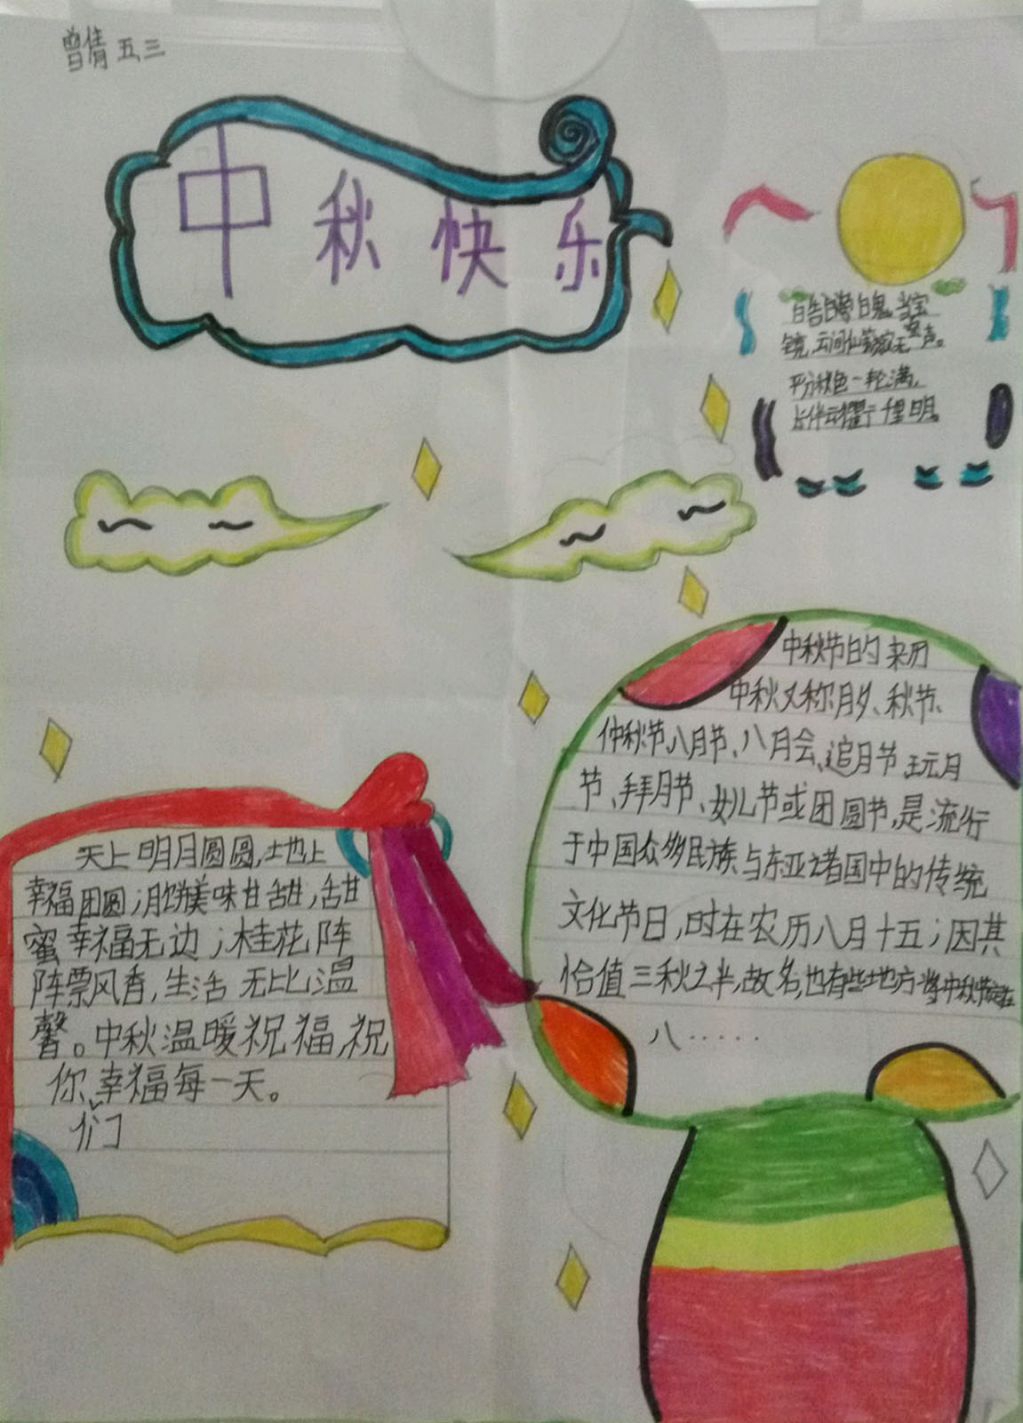 曾倩 五、三
中秋快乐
皓魄当空宝
镜，云间仙籁寂无声。
平分秋色一轮满，
长伴云衢千里明。
中秋节的来历
中秋又称月夕、秋节、
仲秋节、八月节、八月会、追月节、玩月
节、拜月节、女儿节或团圆节，是流行
于中国众多民族与东亚诸国中的传统
文化节日，时在农历八月十五；因其
恰值三秋之半，故名，也有些地方将中秋节定在
八·····
天上明月圆圆，地上
幸福团圆；月饼美味甘甜，甜
蜜幸福无边；桂花阵
阵票风香，生活无比温
馨。中秋温暖祝福，祝
你们幸福每一天。